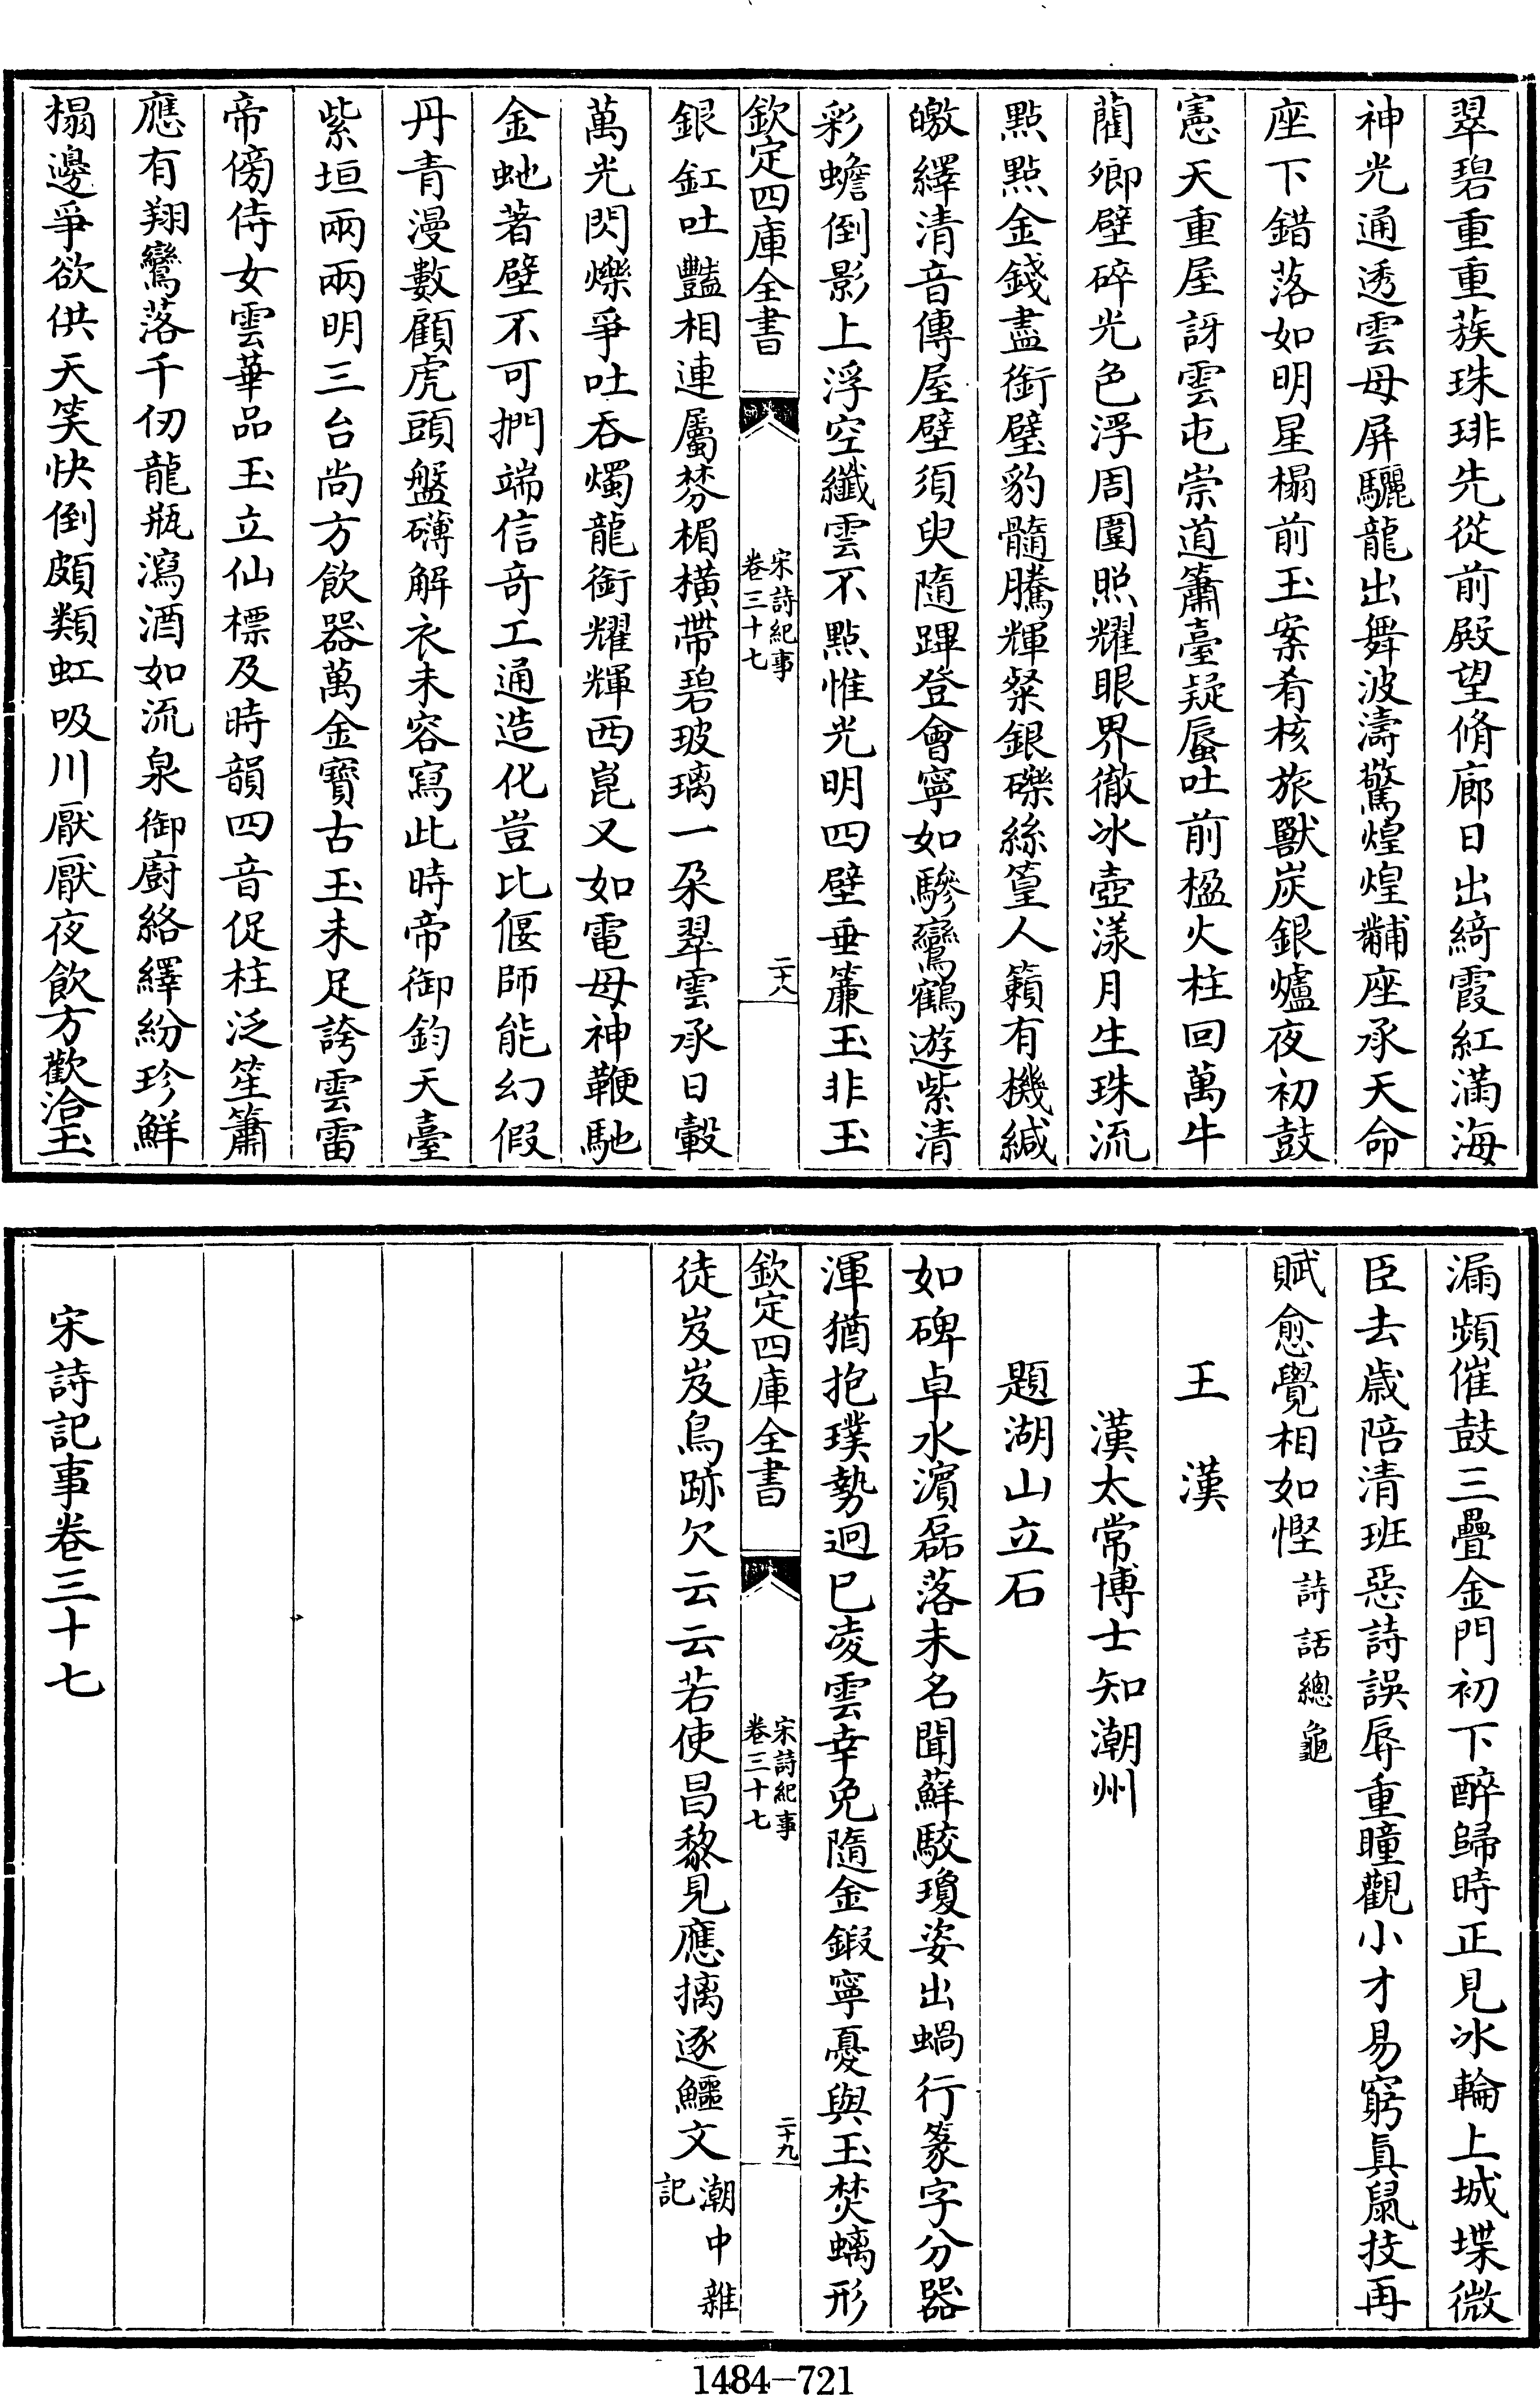 翠碧重重蔟珠琲先從前殿望脩廊日出綺霞紅滿海
神光通透雲母屏驪龍出舞波濤驚煌煌黼座承天命
座下錯落如明星榻前玉案肴核旅獸炭銀爐夜初鼓
憲天重屋訝雲屯崇道簫臺疑蜃吐前楹火柱回萬牛
藺卿壁碎光色浮周圍照耀眼界徹冰壺漾月生珠流
點點金錢盡銜璧豹髓騰輝粲銀礫絲篁人籟有機緘
皦繹清音傳屋壁須臾隨蹕登會寧如驂鸞鶴遊紫清
彩蟾倒影上浮空纖雲不點惟光明四壁垂簾玉非玉
欽定四庫全書
宋詩紀事
卷三十七
二十八
銀釭吐豔相連屬棼楣横帶碧玻璃一朶翠雲承日轂
萬光閃爍爭吐吞燭龍銜耀輝西崑又如電母神鞭馳
金虵著壁不可捫端信竒工通造化豈比偃師能幻假
丹青漫數顧虎頭盤礴解衣未容寫此時帝御鈞天臺
紫垣兩兩明三台尚方飲器萬金寶古玉未足誇雲雷
帝傍侍女雲華品玉立仙標及時韻四音促柱泛笙簫
應有翔鸞落千仞龍瓶瀉酒如流泉御廚絡繹紛珍鮮
榻邊爭欲供天笑快倒頗類虹吸川厭厭夜飲方歡洽玉
漏頻催鼓三疊金門初下醉歸時正見冰輪上城堞微
臣去歲陪清班惡詩誤辱重瞳觀小才易窮眞鼠技再
賦愈覺相如慳詩話總龜
王漢
漢太常博士知潮州
題湖山立石
如碑卓水濱磊落未名聞蘚駮瓊姿出蝸行篆字分器
渾猶抱璞勢迥已凌雲幸免隨金鍜寧憂與玉焚螭形
欽定四庫全書
宋詩紀事
卷三十七
二十九
徒岌岌鳥跡欠云云若使昌黎見應摛逐鱷文潮中雜
記
宋詩記事卷三十七
1484－721